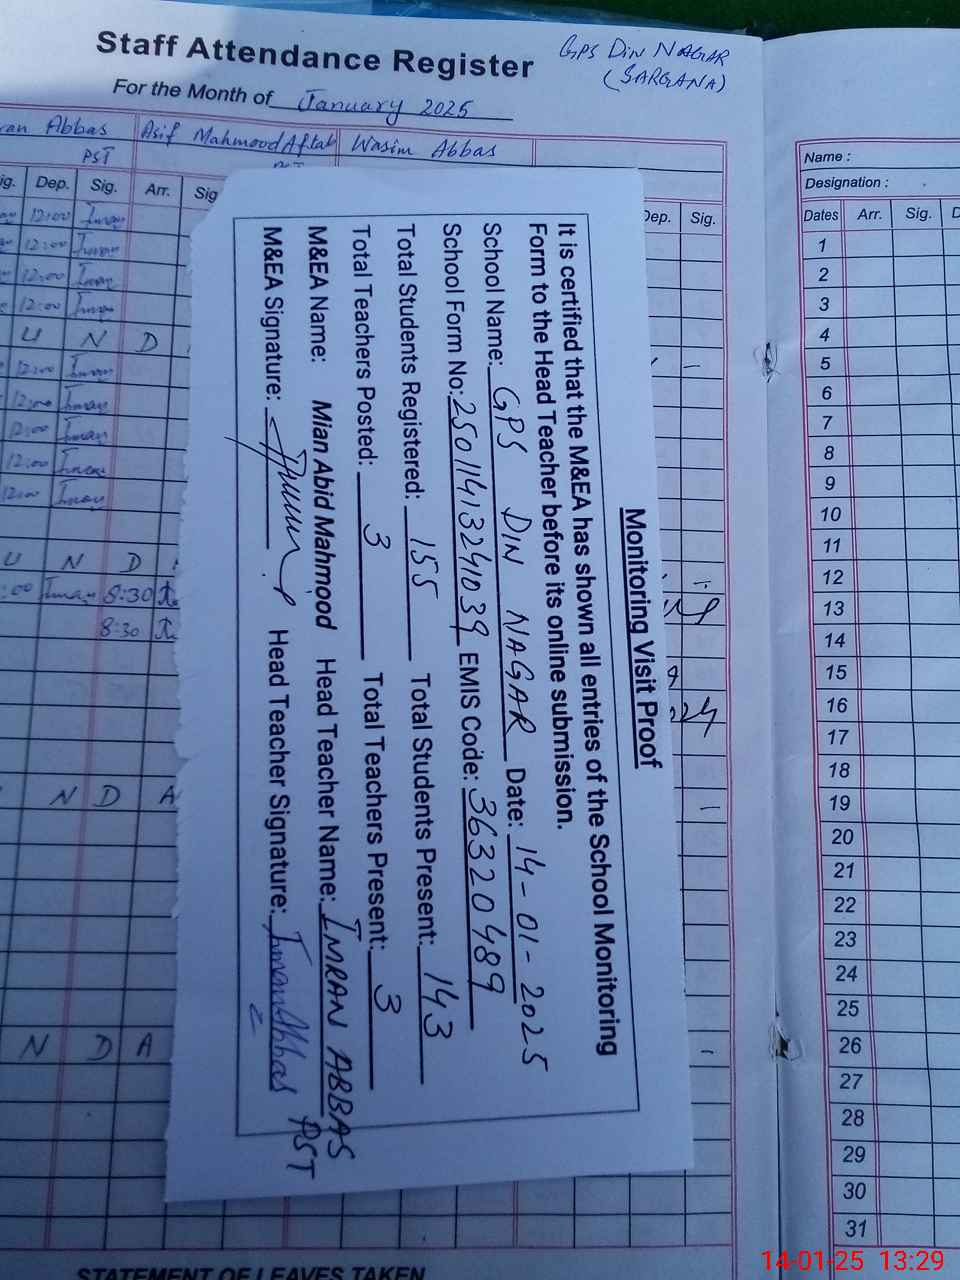 Staff Attendance Register
GPS DIN NAGAR
(SARGANA)
For the Month of January 2025
Abbas
Asif Mahmood Aftab
Wasim Abbas
PST
Dep. Sig. Arr. Sig
Dep. Sig.
12:00 Imran
12:00 Imran
12:00 Imran
12:00 Imran
U N D
12:00 Imran
12:00 Imran
12:00 Imran
12:00 Imran
12:00 Imran
U N D
:00 Imran 8:30
8:30
N D A
N D A
STATEMENT OF LEAVES TAKEN
Monitoring Visit Proof
It is certified that the M&EA has shown all entries of the School Monitoring
Form to the Head Teacher before its online submission.
School Name: GPS DIN NAGAR Date: 14-01-2025
School Form No: 25011413241039 EMIS Code: 36320489
Total Students Registered: 155 Total Students Present: 143
Total Teachers Posted: 3 Total Teachers Present: 3
M&EA Name: Mian Abid Mahmood Head Teacher Name: IMRAN ABBAS
M&EA Signature: Head Teacher Signature: Imran Abbas PST
Name :
Designation :
Dates Arr. Sig.
1
2
3
4
5
6
7
8
9
10
11
12
13
14
15
16
17
18
19
20
21
22
23
24
25
26
27
28
29
30
31
14-01-25 13:29